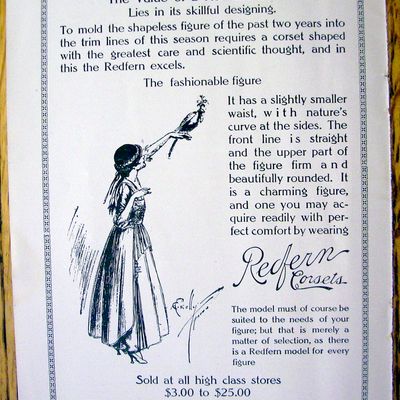 Lies in its skillful designing.
To mold the shapeless figure of the past two years into
the trim lines of this season requires a corset shaped
with the greatest care and scientific thought, and in
this the Redfern excels.
The fashionable figure
It has a slightly smaller
waist, with nature's
curve at the sides. The
front line is straight
and the upper part of
the figure firm and
beautifully rounded. It
is a charming figure,
and one you may ac-
quire readily with per-
fect comfort by wearing
Redfern
Corsets
The model must of course be
suited to the needs of your
figure; but that is merely a
matter of selection, as there
is a Redfern model for every
figure
Sold at all high class stores
$3.00 to $25.00